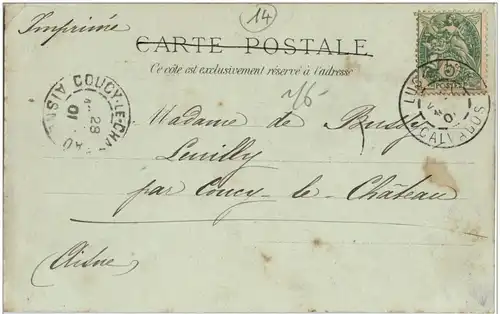 14
Imprimée
CARTE POSTALE
Ce côté est exclusivement réservé à l'adresse
COUCY-LE-CHA
AISNE
28
01
CALVADOS
5
POSTES
Madame de Bussy
Leuilly
par Coucy-le-Château
(Aisne)